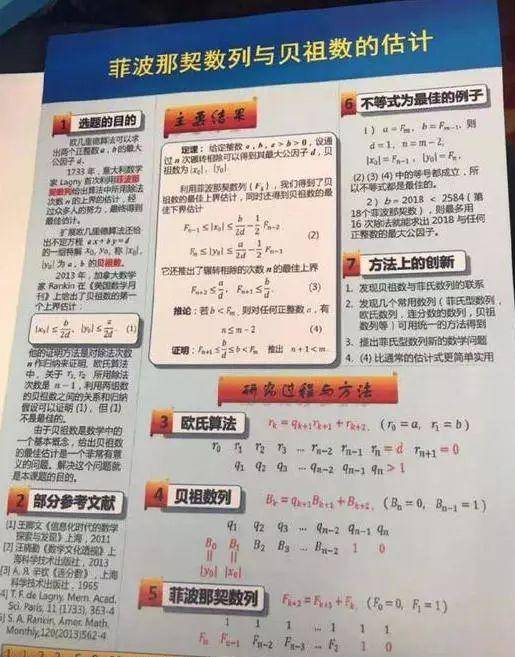 菲波那契数列与贝祖数的估计
1 选题的目的
欧几里德算法可以求
出两个正整数 a,b的最大
公因子 d.
1733 年,意大利数学
家 Lagny 首次利用菲波那
契数列给出算法中所用除法
次数 n 的上界的估计,经
过众多人的努力,最终得到
最佳估计。
扩展欧几里德算法还给
出不定方程 ax+by=d
的一组特解 x₀, y₀, 称 |x₀|,
|y₀| 为 a, b 的贝祖数。
2013 年,加拿大数学
家 Rankin 在《美国数学月
刊》上给出了贝祖数的第一
个上界估计:
|x₀| ≤ b/2d, |y₀| ≤ a/2d. (1)
他的证明方法是对除法次数
n 作归纳来证明, 欧几里德算法
中,关于 r₁, r₂ 所用除法
次数是 n − 1,利用两组数
的贝祖数之间的关系和归纳
假设可以证明 (1), 但 (1)
不是最佳的。
由于贝祖数是数学中的
一个基本概念,给出贝祖数
的最佳估计是一个非常有意
义的问题。解决这个问题就
是本课题的目的。
2 部分参考文献
[1] 王卿文《信息化时代的数学
探索与发现》上海,2011
[2] 汪晓勤《数学文化透视》上
海科学技术出版社,2013
[3] A. Я. 辛钦《连分数》,上海
科学技术出版社,1965
4] T. F. de Lagny. Mem. Acad.
Sci. Paris, 11 (1733), 363-4
5] S. A. Rankin, Amer. Math.
Monthly,120(2013)562-4
主要结果
定理:给定整数 a, b, a > b > 0, 设通
过 n 次辗转相除可以得到其最大公因子 d, 贝
祖数为 |x₀|, |y₀|.
利用菲波那契数列 {Fₖ}, 我们得到了贝
祖数的最佳上界估计,同时还得到贝祖数的最
佳下界估计
Fₙ₋₁ ≤ |x₀| ≤ b/2d − 1/2 Fₙ₋₂
(2)
Fₙ ≤ |y₀| ≤ a/2d − 1/2 Fₙ₋₁
它还推出了辗转相除的次数 n 的最佳上界
Fₙ₊₂ ≤ a/d, Fₙ₊₁ ≤ b/d. (3)
推论:若 b < Fₘ, 则对任何正整数 a, 有
n ≤ m − 2 (4)
证明:Fₙ₊₁ ≤ b/d ≤ b < Fₘ 推出 n + 1 < m.
6 不等式为最佳的例子
1) a = Fₘ, b = Fₘ₋₁, 则
d = 1, n = m − 2,
|x₀| = Fₙ₋₁, |y₀| = Fₙ,
(2) (3) (4) 中的等号都成立,所
以不等式都是最佳的。
2) b = 2018 < 2584 (第
18个菲波那契数), 则最多用
16 次除法就能求出 2018 与任何
正整数的最大公因子。
7 方法上的创新
1. 发现贝祖数与菲氏数列的联系
2. 发现几个常用数列(菲氏型数列,
欧氏数列,连分数的数列,贝祖
数列等)可用统一的方法得到
3. 提出菲氏型数列新的数学问题
4. (4) 比通常的估计式更简单实用
研究过程与方法
3 欧氏算法 rₖ = qₖ₊₁rₖ₊₁ + rₖ₊₂, (r₀ = a, r₁ = b)
r₀ r₁ r₂ r₃ … rₙ₋₂ rₙ₋₁ rₙ = d rₙ₊₁ = 0
q₁ q₂ q₃ … qₙ₋₂ qₙ₋₁ qₙ > 1
4 贝祖数列 Bₖ = qₖ₊₁Bₖ₊₁ + Bₖ₊₂, (Bₙ = 0, Bₙ₋₁ = 1)
q₁ q₂ q₃ … qₙ₋₂ qₙ₋₁ qₙ
B₀ B₁ B₂ B₃ … Bₙ₋₂ 1 0
|| ||
|y₀| |x₀|
5 菲波那契数列 Fₖ₊₂ = Fₖ₊₁ + Fₖ, (F₀ = 0, F₁ = 1)
1 1 1 … 1 1 1
Fₙ Fₙ₋₁ Fₙ₋₂ Fₙ₋₃ … F₂ 1 0